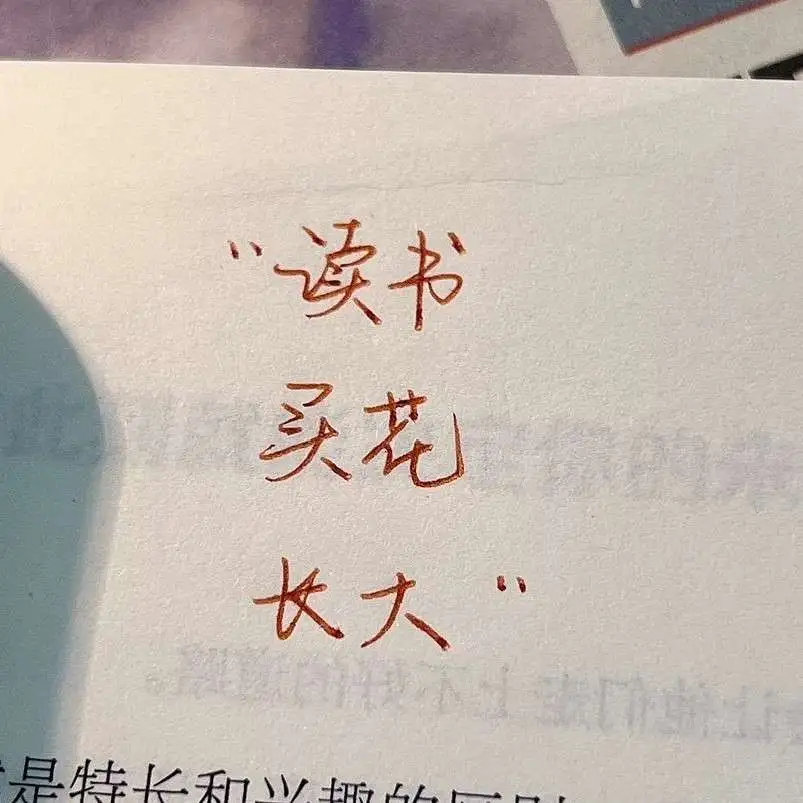 “读书
买花
长大”
是特长和兴趣的区别